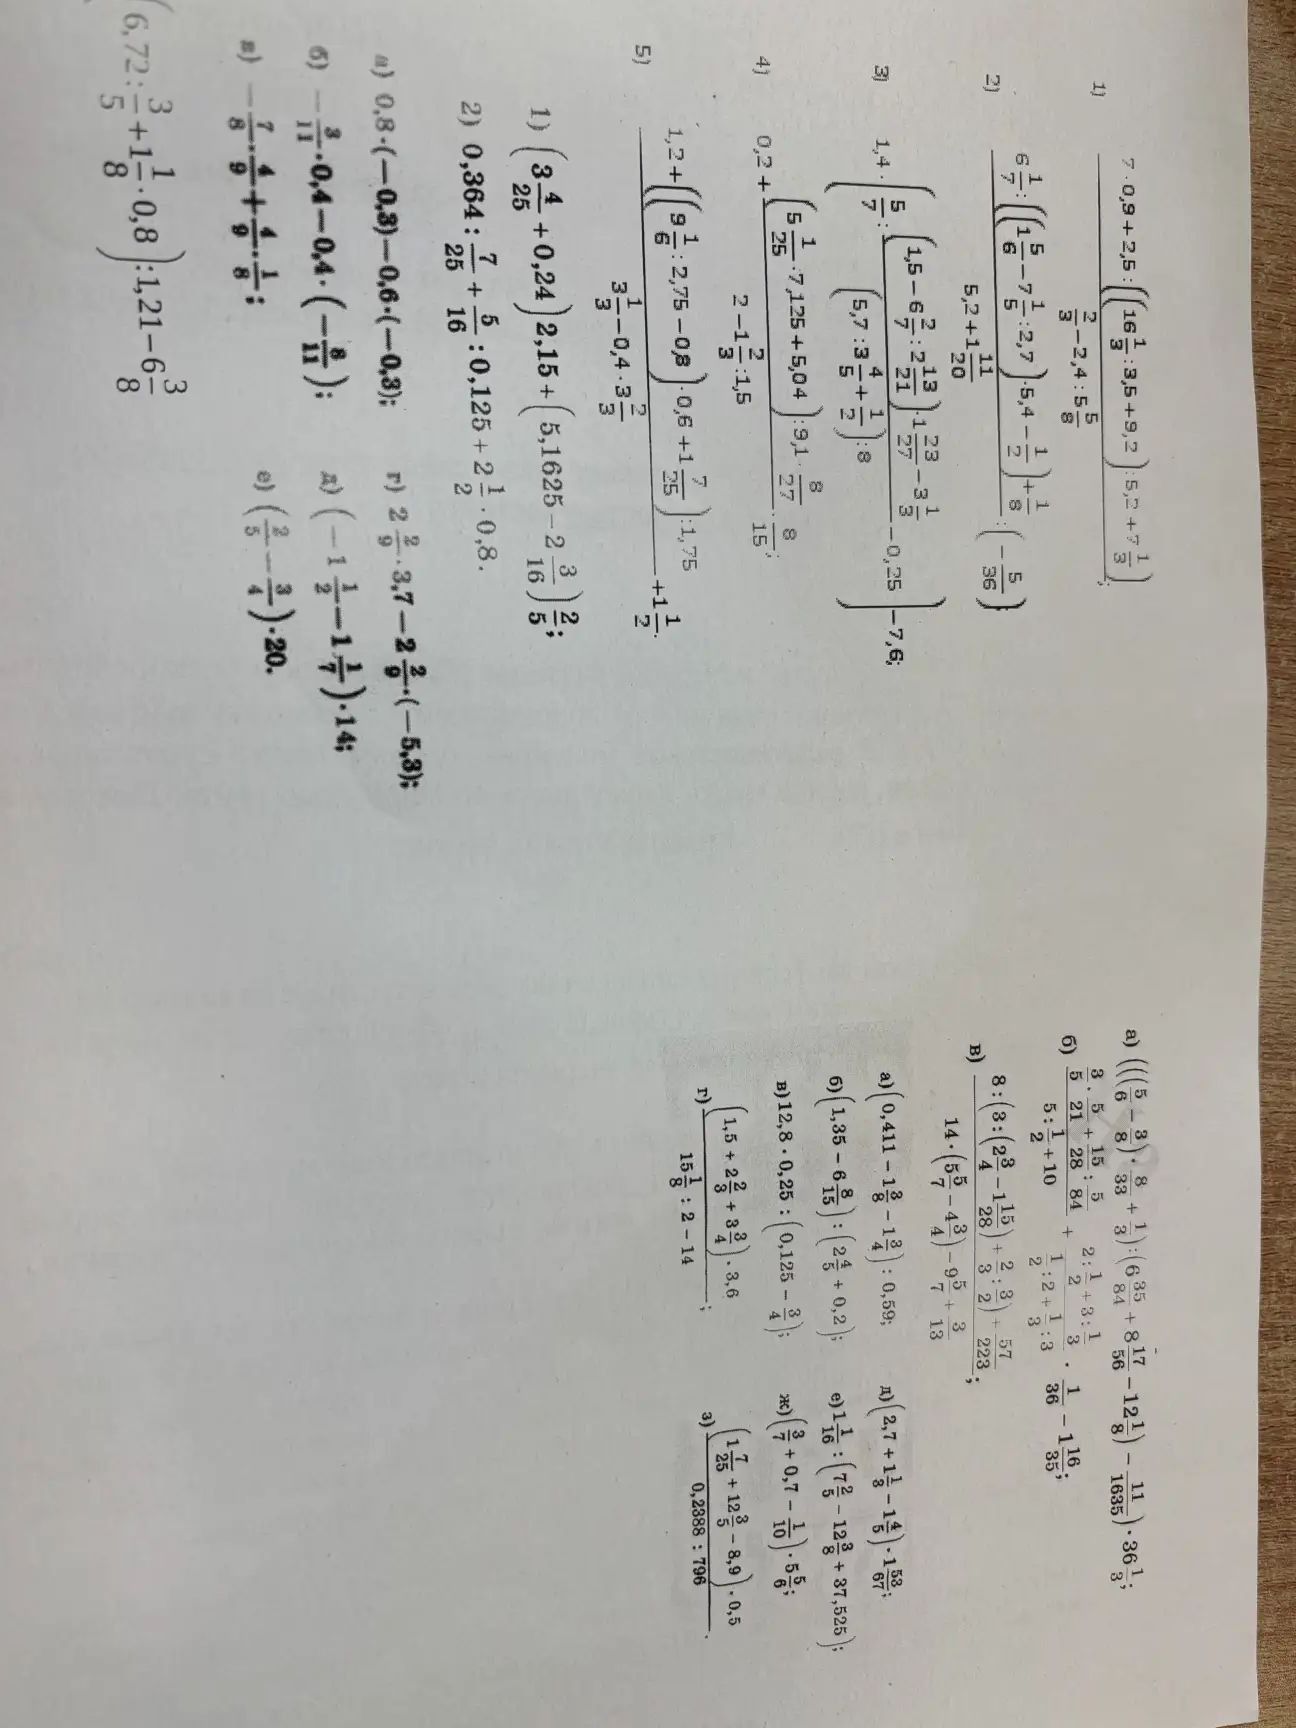 1) (7·0,9+2,5:((16 1/3:3,5+9,2):5,2+7 1/3))/(2/3−2,4:5 5/8);
2) (6 1/7:(((1 5/6−7 1/5:2,7)·5,4−1/2)+1/8))/(5,2+1 11/20):(−5/36);
3) 1,4·(5/7:((1,5−6 2/7:2 13/21)·1 23/27−3 1/3)/((5,7:3 4/5+1/2):8)−0,25)−7,6;
4) 0,2+((5 1/25:7,125+5,04):9,1·8/27)/(2−1 2/3:1,5)·8/15;
5) (1,2+(((9 1/6:2,75−0,8)·0,6+1 7/25):1,75))/(3 1/3−0,4·3 2/3)+1 1/2.
1) (3 4/25+0,24)2,15+(5,1625−2 3/16)2/5;
2) 0,364:7/25+5/16:0,125+2 1/2·0,8.
а) 0,8·(−0,3)−0,6·(−0,3); г) 2 2/9·3,7−2 2/9·(−5,3);
б) −3/11·0,4−0,4·(−8/11); д) (−1 1/2−1 1/7)·14;
в) −7/8·4/9+4/9·1/8; е) (2/5−3/4)·20.
(6,72:3/5+1 1/8·0,8):1,21−6 3/8
а) (((5/6−3/8)·8/33+1/3):(6 35/84+8 17/56−12 1/8)−11/1635)·36 1/3;
б) (3/5·5/21+15/28:5/84)/(5:1/2+10)+(2:1/2+3:1/3)/(1/2:2+1/3:3)·1/36−1 16/35;
в) (8:(3:(2 3/4−1 15/28)+2/3:3/2)+57/223)/(14·(5 5/7−4 3/4)−9 5/7+3/13);
а) (0,411−1 3/8−1 3/4):0,59; д) (2,7+1 1/3−1 4/5)·1 53/67;
б) (1,35−6 8/15):(2 4/5+0,2); е) 1 1/16:(7 2/5−12 3/8+37,525);
в) 12,8·0,25:(0,125−3/4); ж) (3/7+0,7−1/10)·5 5/6;
г) ((1,5+2 2/3+3 3/4)·3,6)/(15 1/8:2−14); з) ((1 7/25+12 3/5−8,9)·0,5)/(0,2388:796).